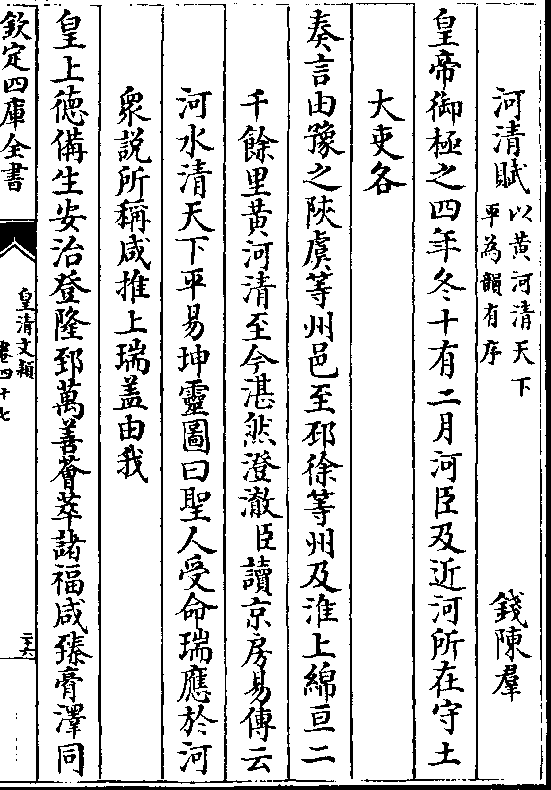 河清賦以黄河清天下平為韻有序 錢陳羣
皇帝御極之四年冬十有二月河臣及近河所在守土
大吏各
奏言由豫之陜虞等州邑至邳徐等州及淮上綿亘二
千餘里黄河清至今湛然澄澈臣讀京房易傳云
河水清天下平易坤靈圖曰聖人受命瑞應於河
衆説所稱咸推上瑞盖由我
皇上徳備生安治登隆郅萬善薈萃諸福咸臻膏澤同
欽定四庫全書
皇清文穎
卷四十七